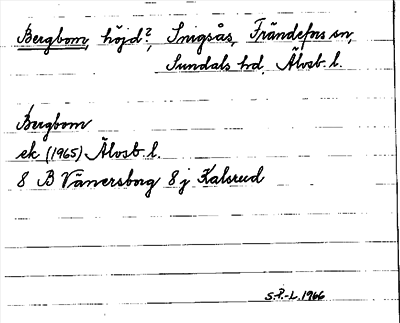 Bergbom, höjd?, Snigsås, Frändefors sn,
Sundals hd, Älvsb. l.
Bergbom
ek (1965) Älvsb l.
8 B Vänersborg 8 j Kalsrud
S.P.-L. 1966